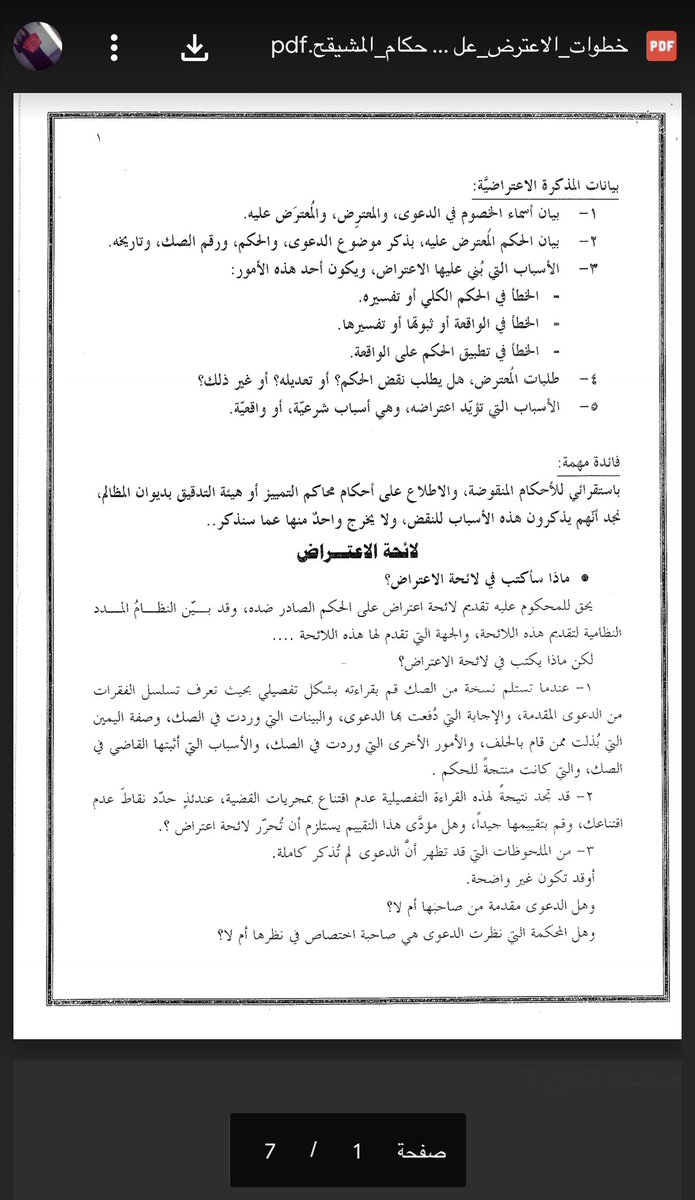 خطوات_الاعترض_عل ... حكام_المشيقح.pdf
PDF
١
بيانات المذكرة الاعتراضيَّة:
١- بيان أسماء الخصوم في الدعوى، والمعترِض، والمُعترَض عليه.
٢- بيان الحكم المُعترض عليه، بذكر موضوع الدعوى، والحكم، ورقم الصك، وتاريخه.
٣- الأسباب التي بُني عليها الاعتراض، ويكون أحد هذه الأمور:
- الخطأ في الحكم الكلي أو تفسيره.
- الخطأ في الواقعة أو ثبوتها أو تفسيرها.
- الخطأ في تطبيق الحكم على الواقعة.
٤- طلبات المُعترض، هل يطلب نقض الحكم؟ أو تعديله؟ أو غير ذلك؟
٥- الأسباب التي تؤيّد اعتراضه، وهي أسباب شرعيّة، أو واقعيّة.
فائدة مهمة:
باستقرائي للأحكام المنقوضة، والاطلاع على أحكام محاكم التمييز أو هيئة التدقيق بديوان المظالم،
نجد أنّهم يذكرون هذه الأسباب للنقض، ولا يخرج واحدٌ منها عما سنذكر..
لائحة الاعتـــراض
• ماذا سأكتب في لائحة الاعتراض؟
يحق للمحكوم عليه تقديم لائحة اعتراض على الحكم الصادر ضده، وقد بـــيّن النظـــامُ المـــدد
النظامية لتقديم هذه اللائحة، والجهة التي تقدم لها هذه اللائحة ....
لكن ماذا يكتب في لائحة الاعتراض؟
١- عندما تستلم نسخة من الصك قم بقراءته بشكل تفصيلي بحيث تعرف تسلسل الفقرات
من الدعوى المقدمة، والإجابة التي دُفعت بها الدعوى، والبينات التي وردت في الصك، وصفة اليمين
التي بُذلت ممن قام بالحلف، والأمور الأخرى التي وردت في الصك، والأسباب التي أثبتها القاضي في
الصك، والتي كانت منتجةً للحكم .
٢- قد تجد نتيجةً لهذه القراءة التفصيلية عدم اقتناع بمجريات القضية، عندئذٍ حدّد نقاطَ عدم
اقتناعك، وقم بتقييمها جيداً، وهل مؤدَّى هذا التقييم يستلزم أن تُحرّر لائحة اعتراض ؟.
٣- من الملحوظات التي قد تظهر أنَّ الدعوى لم تُذكر كاملة.
أوقد تكون غير واضحة.
وهل الدعوى مقدمة من صاحبها أم لا؟
وهل المحكمة التي نظرت الدعوى هي صاحبة اختصاص في نظرها أم لا؟
صفحة 1 / 7